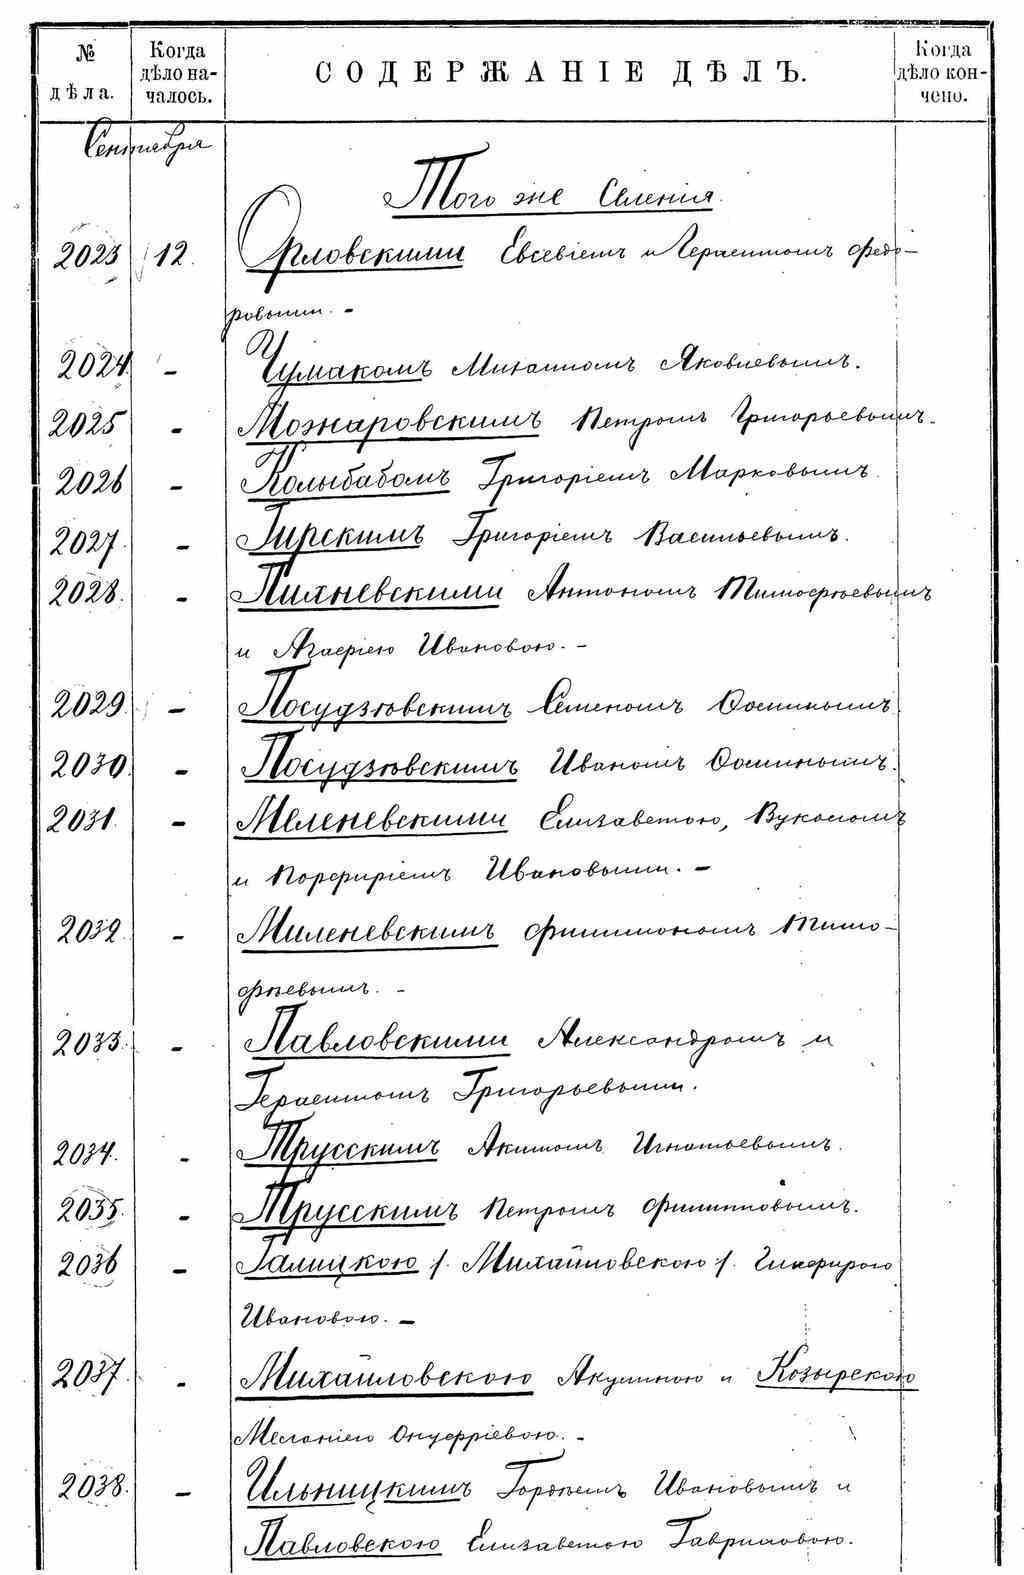 № дѣла. Когда дѣло началось. СОДЕРЖАНІЕ ДѢЛЪ. Когда дѣло кончено.
Сентября
Того же Селенія.
2023 12. Орловскими Евсевіемъ и Герасимомъ Ѳедо-
ровыми. -
2024 - Чумакомъ Михаиломъ Яковлевымъ.
2025 - Можаровскимъ Петромъ Григорьевымъ.
2026 - Колыбабомъ Григоріемъ Марковымъ.
2027. - Гирскимъ Григоріемъ Васильевымъ.
2028. - Пихневскими Антономъ Тимофѣевымъ
и Агафіею Ивановою. -
2029. - Посудзювскимъ Семеномъ Ѳоминымъ
2030. - Посудзювскимъ Иваномъ Ѳоминымъ.
2031. - Меленевскими Елизаветою, Вуколомъ
и Порфиріемъ Ивановыми. -
2032. - Миленевскимъ Филимономъ Тимо-
фѣевымъ. -
2033. - Павловскими Александромъ и
Герасимомъ Григорьевыми.
2034. - Трусскимъ Акимомъ Игнатьевымъ.
2035. - Трусскимъ Петромъ Филипповымъ.
2036 - Галицкою /. Михайловскою /. Гликирою
Ивановою. -
2037. - Михайловскою Акулиною и Козырскою
Меланіею Онуфріевою. -
2038. - Ильницкимъ Гордѣемъ Ивановымъ и
Павловскою Елизаветою Гавриловою.